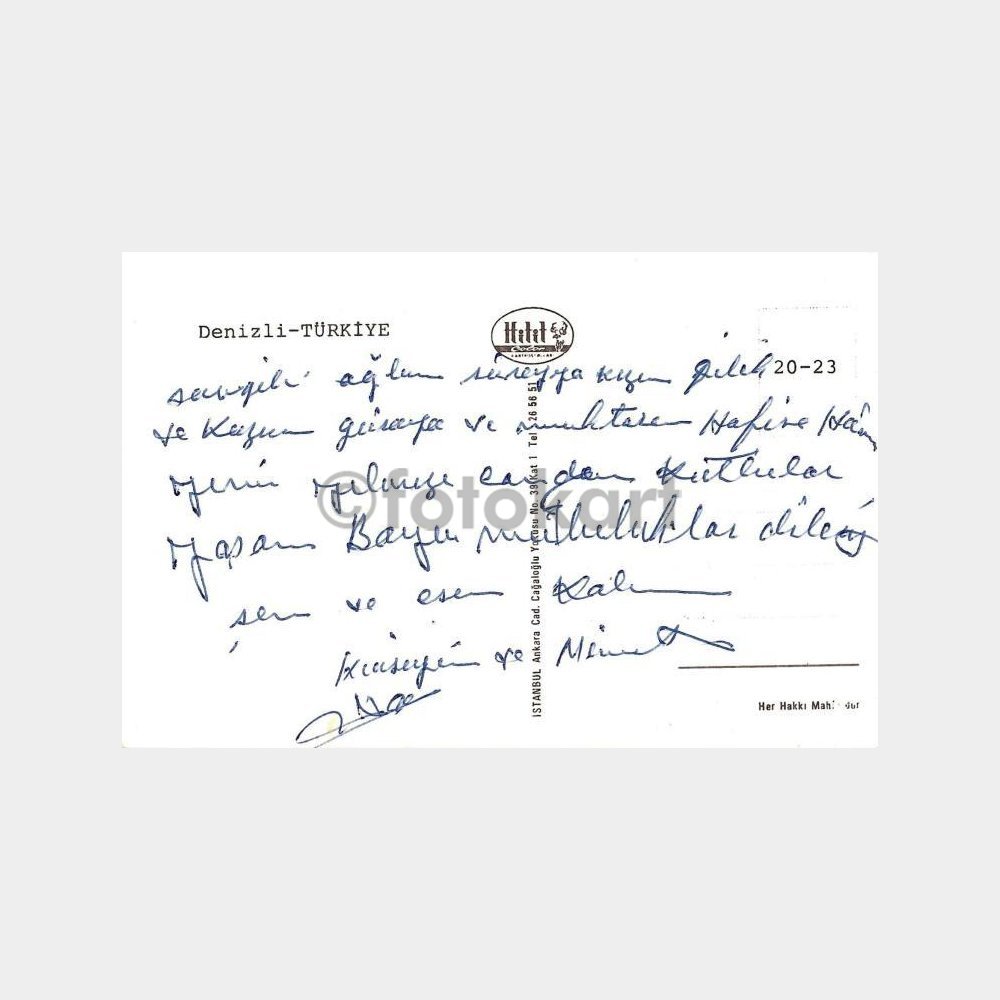 Denizli-TÜRKİYE
Hitit
Color
20-23
sevgili oğlum süreyya kızım
ve Kızım güraya ve muhterem Hafize Hanım
yeni yılınızı candan Kutlular
yaşam Boyu mutluluklar dileriz
şen ve esen Kalın
Hüseyin ve
©fotokart
İSTANBUL Ankara Cad. Cağaloğlu Yokuşu No. 39 Kat 1 Tel 26 56 51
Her Hakkı Mahfuzdur